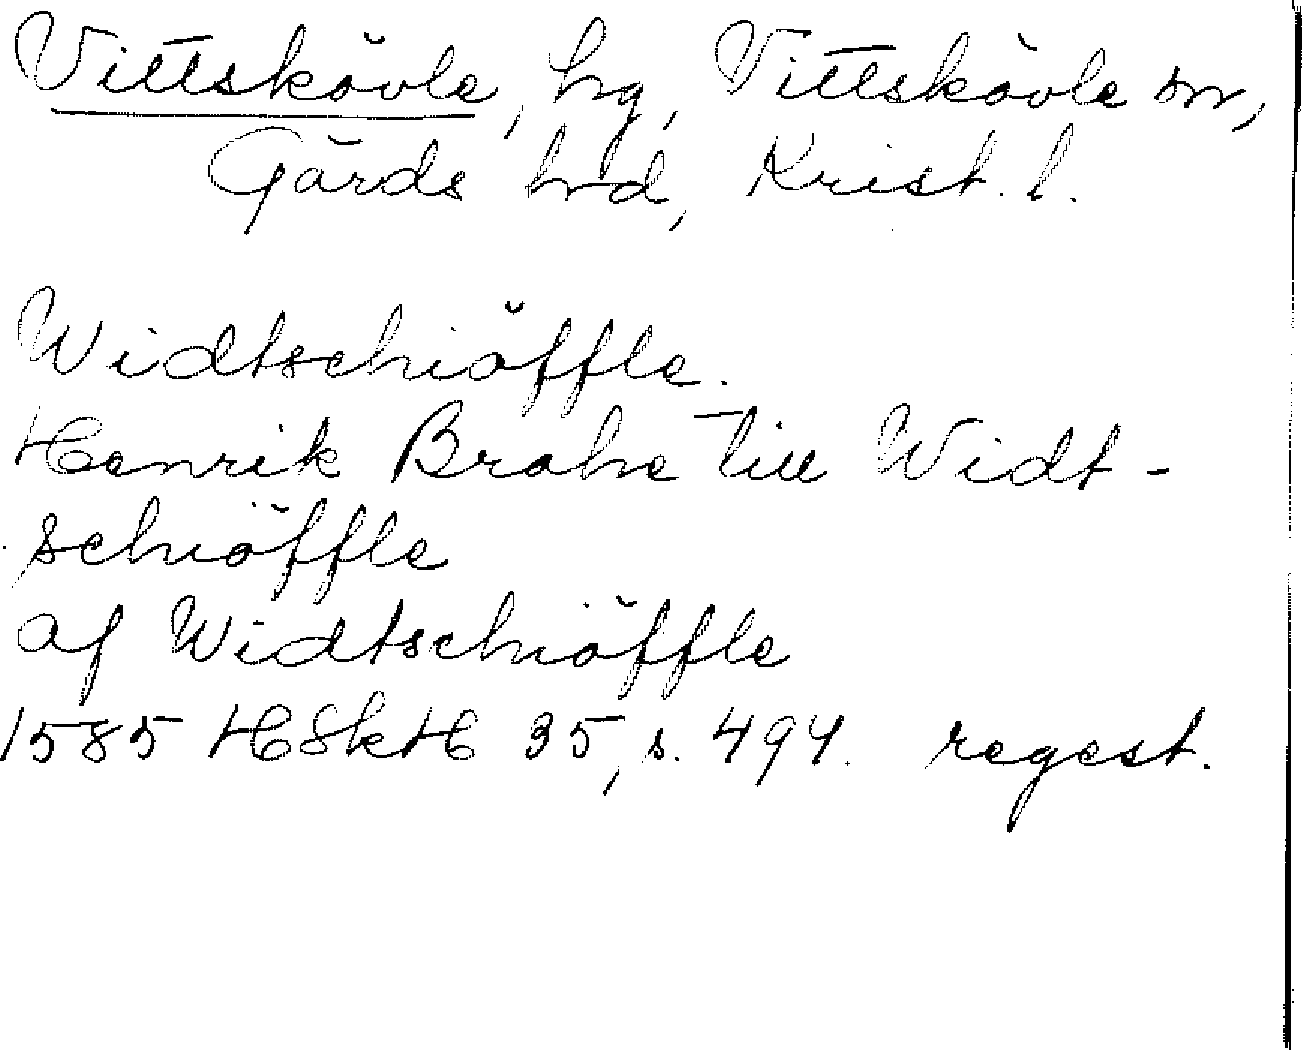 Vittskövle, hg, Vittskövle sn,
Gärds hrd, Krist. l.
Widtschiöffle.
Henrik Brahe till Widt-
schiöffle
af Widtschiöffle
1585 HSkH 35, s. 494. regest.